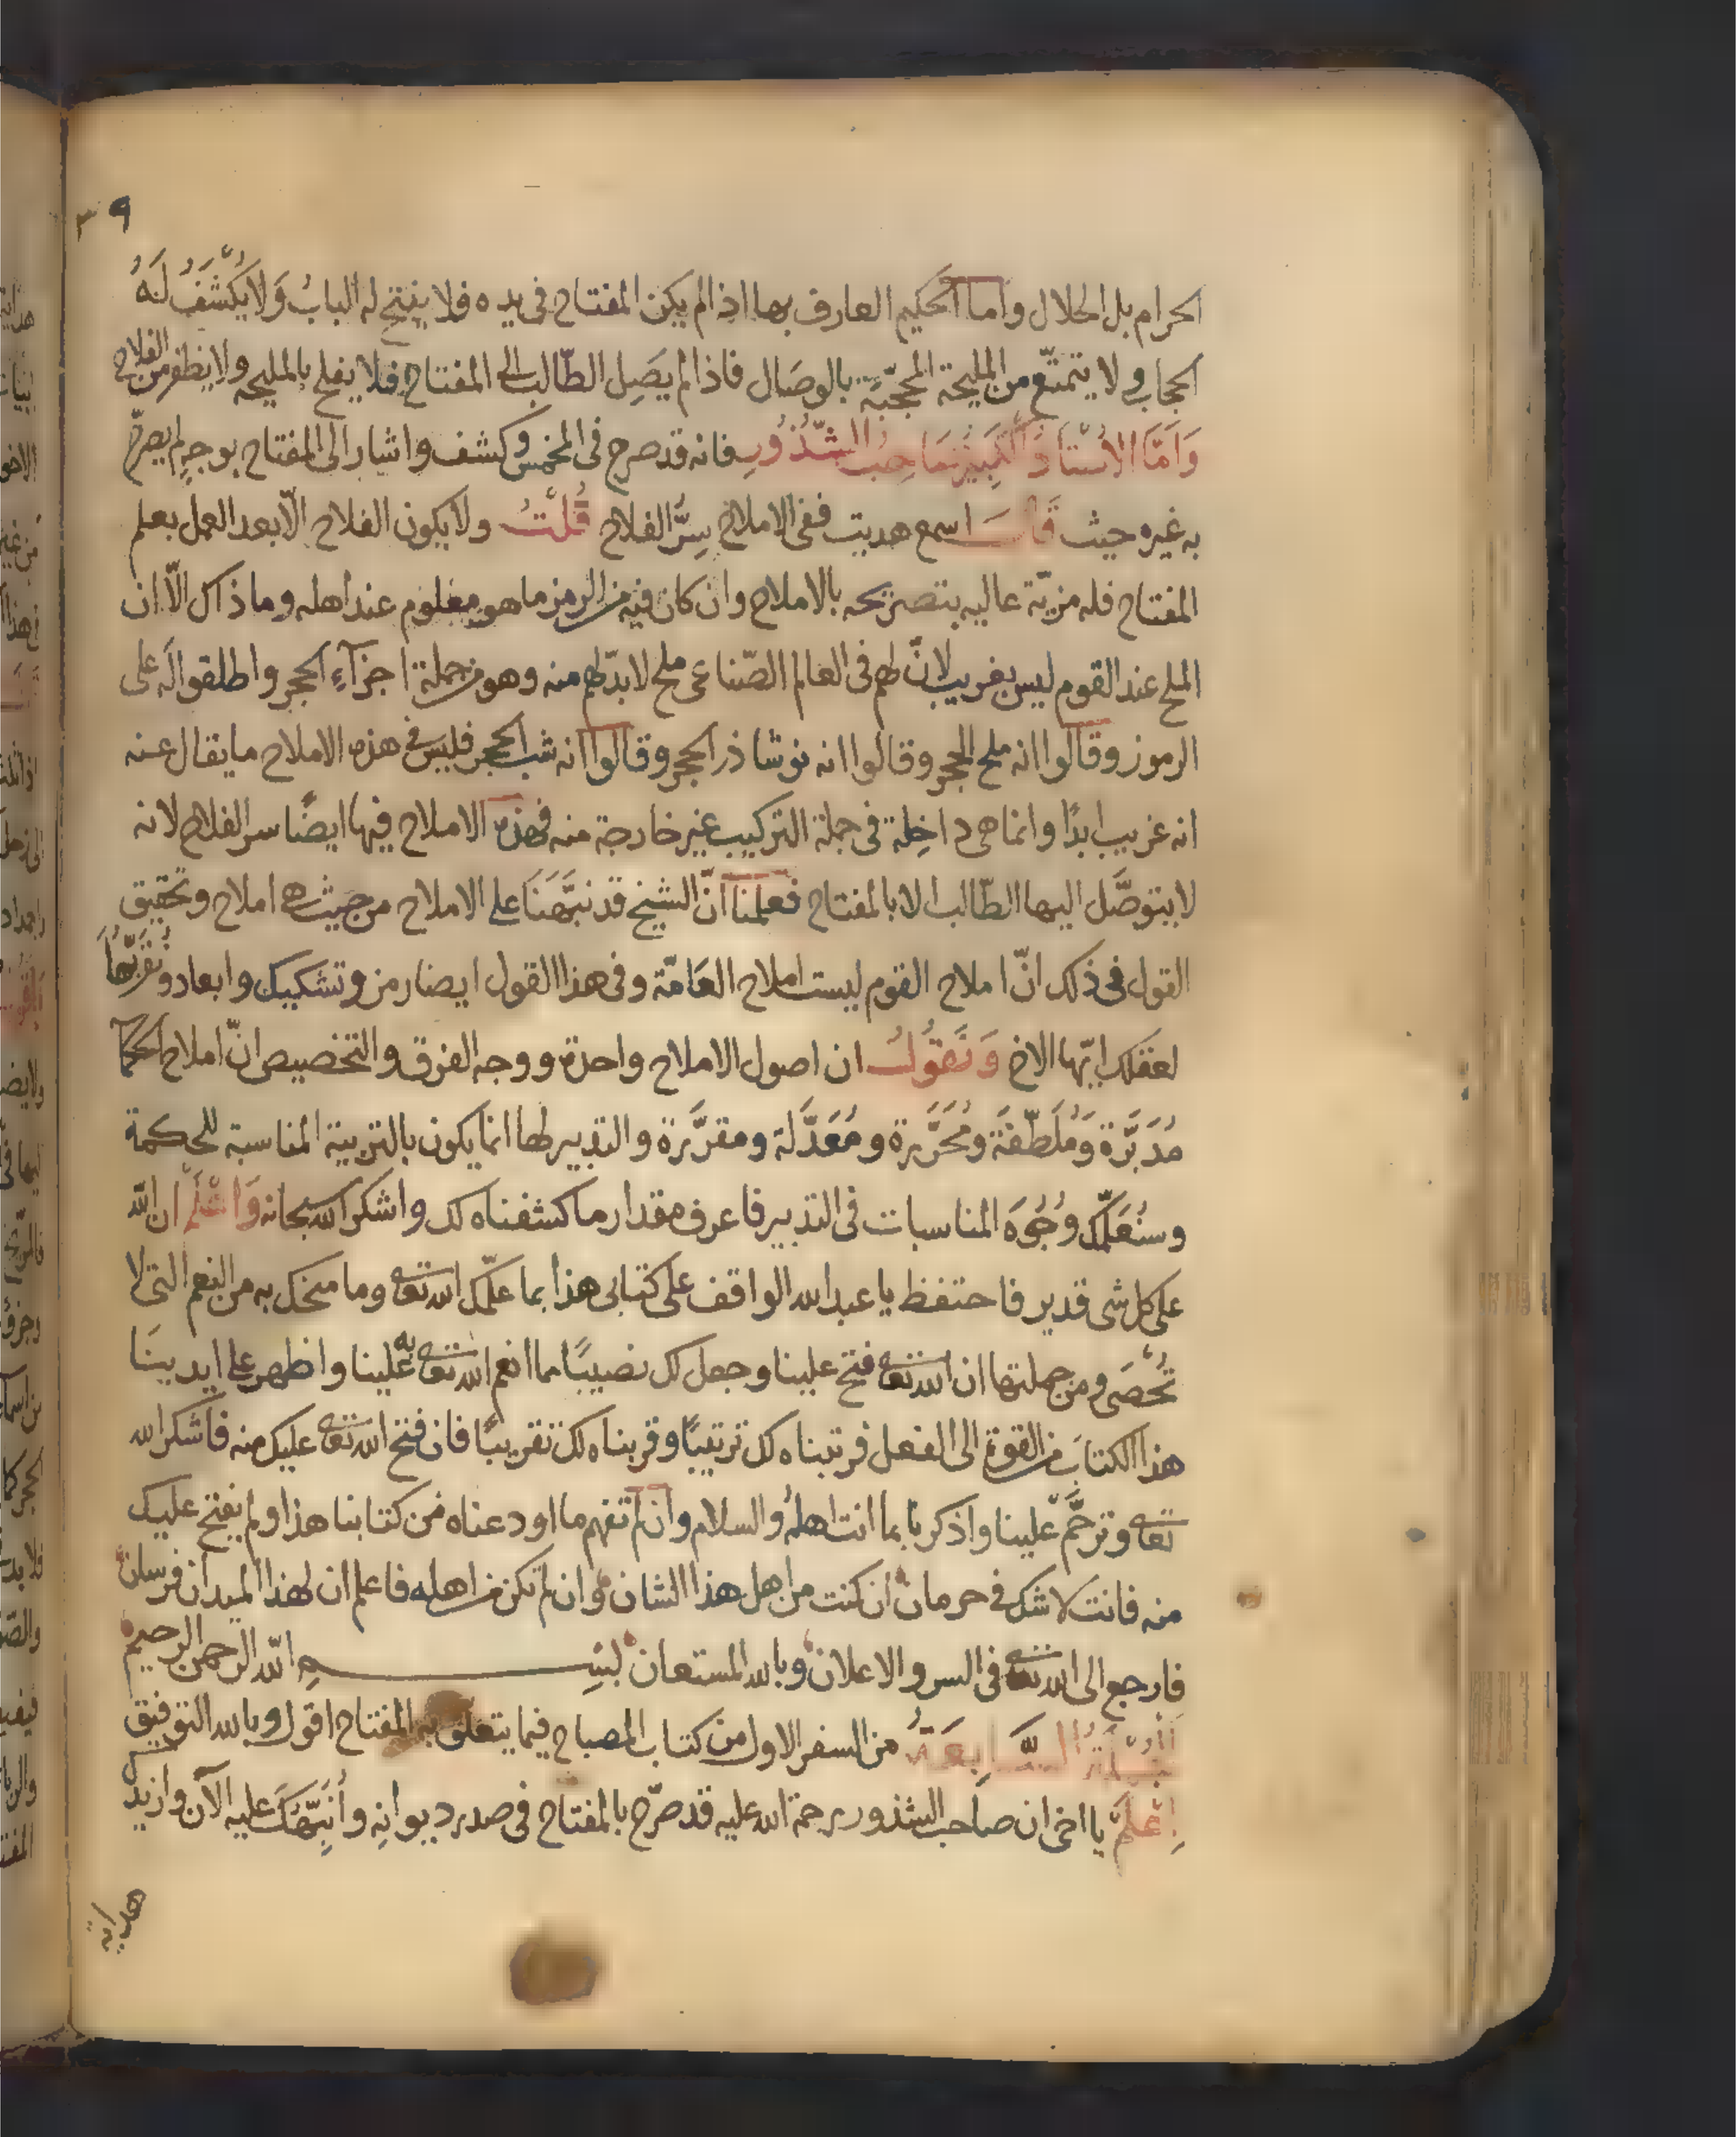 ٣٩
الحرام بل الحلال واما الحكيم العارف بها اذا لم يكن المفتاح فى يده فلا يفتح له الباب وَلا يُكْشَفُ لَهُ
الحجاب ولا يتمتّع من المليحة المحجّبَة بالوصَال فاذا لم يَصِل الطّالب الى المفتاح فلا يفلح بالمليحه ولا يظفر من الفلاح
وَاَمَّا الاُسْتَاذُ الكَبِيْرُ صَاحِبُ الشُّذُوْرِ فانه قد صرح فى المخمس وكشف واشار الى المفتاح بوجهٍ لم يصرّح
به غيره حيث قَالَ اسمع هديت ففى الاملاح سِرُّ الفلاح قُلْتُ ولا يكون الفلاح الّا بعد العمل بعلم
المفتاح فله مزيّة عاليه بتصريحه بالاملاح وان كان فيه من الرمز ما هو معلوم عند اهله وما ذاك الّا ان
الملح عند القوم ليس بغريب لانّ لهم فى العالم الصّناعى ملح لا بدّ لهم منه وهو من جملة اجزآء الحجر واطلقوا له على
الرموز وقالوا انه ملح الحجر وقالوا انه نوشاذر الحجر وقالوا انه شب الحجر فليس فى هذه الاملاح ما يقال عنه
انه غريب ابدًا وانما هى داخِلة فى جملة التركيب غير خارجة منه فهذه الاملاح فيها ايضًا سر الفلاح لانه
لا يتوصَّل اليها الطّالب الا بالمفتاح فعلمنا انّ الشيخ قد نبَّهَنَا على الاملاح من حيث هى املاح وتحقيق
القول فى ذلك انّ املاح القوم ليست املاح العَامّة وفى هذا القول ايضا رمز وتشكيك وابعاد ونُقَرِّبُهَا
لعقلك ايّها الاخ وَنَقُوْلُ ان اصول الاملاح واحدة ووجه الفرق والتخصيص انّ املاح الحكما
مُدَبَّرَة وَمُلَطّفَة ومُحَرَّرة ومُعَدَّلَة ومقرَّرة والتدبير لها انما يكون بالتربية المناسبة للحكمة
وسنُعَلِّمُك وُجُوهَ المناسبات فى التدبير فاعرف مقدار ما كشفناه لك واشكر الله سبحانه وَاعْلَمْ ان الله
على كل شى قدير فاحتفظ يا عبد الله الواقف على كتابى هذا بما علّمك الله تعا وما منحك به من النعم التى لا
تُحْصَى ومن جملتها ان الله تعا فتح علينا وجعل لك نصيبًا مما انعم الله تعا به علينا واظهر على ايدينَا
هذا الكتابَ من القوة الى الفعل فرتبناه لك ترتيبًا وقربناه لك تقريبًا فان فتح الله تعا عليك منه فاشكر الله
تعا وترحَّم علينا واذكرنا بما انت اهله والسلام وان لم تفهم ما اودعناه من كتابنا هذا ولم يفتح عليك
منه فانت لا شك فى حرمان ان كنت من اهل هذا الشان وان لم تكن من اهله فاعلم ان لهذا الميدان فرسان
فارجع الى الله تعا فى السر والاعلان وبالله المستعان بسم الله الرحمن الرحيم
الجُمْلَةُ السَّابِعَةُ من السفر الاول من كتاب المصباح فيما يتعلق به المفتاح اقول وبالله التوفيق
اِعْلَمْ يا اخى ان صاحب الشذور رحمة الله عليه قد صرّح بالمفتاح فى صدر ديوانِه وأُنَبِّهُكَ عليه الآن وازيدك
هداية